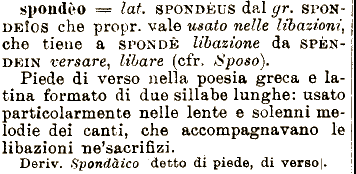 spondèo = lat. SPONDÈUS dal gr. SPON-
DEÎOS che propr. vale usato nelle libazioni,
che tiene a SPONDÈ libazione da SPÈN-
DEIN versare, libare (cfr. Sposo).
Piede di verso nella poesia greca e la-
tina formato di due sillabe lunghe: usato
particolarmente nelle lente e solenni me-
lodie dei canti, che accompagnavano le
libazioni ne'sacrifizi.
Deriv. Spondàico detto di piede, di verso.